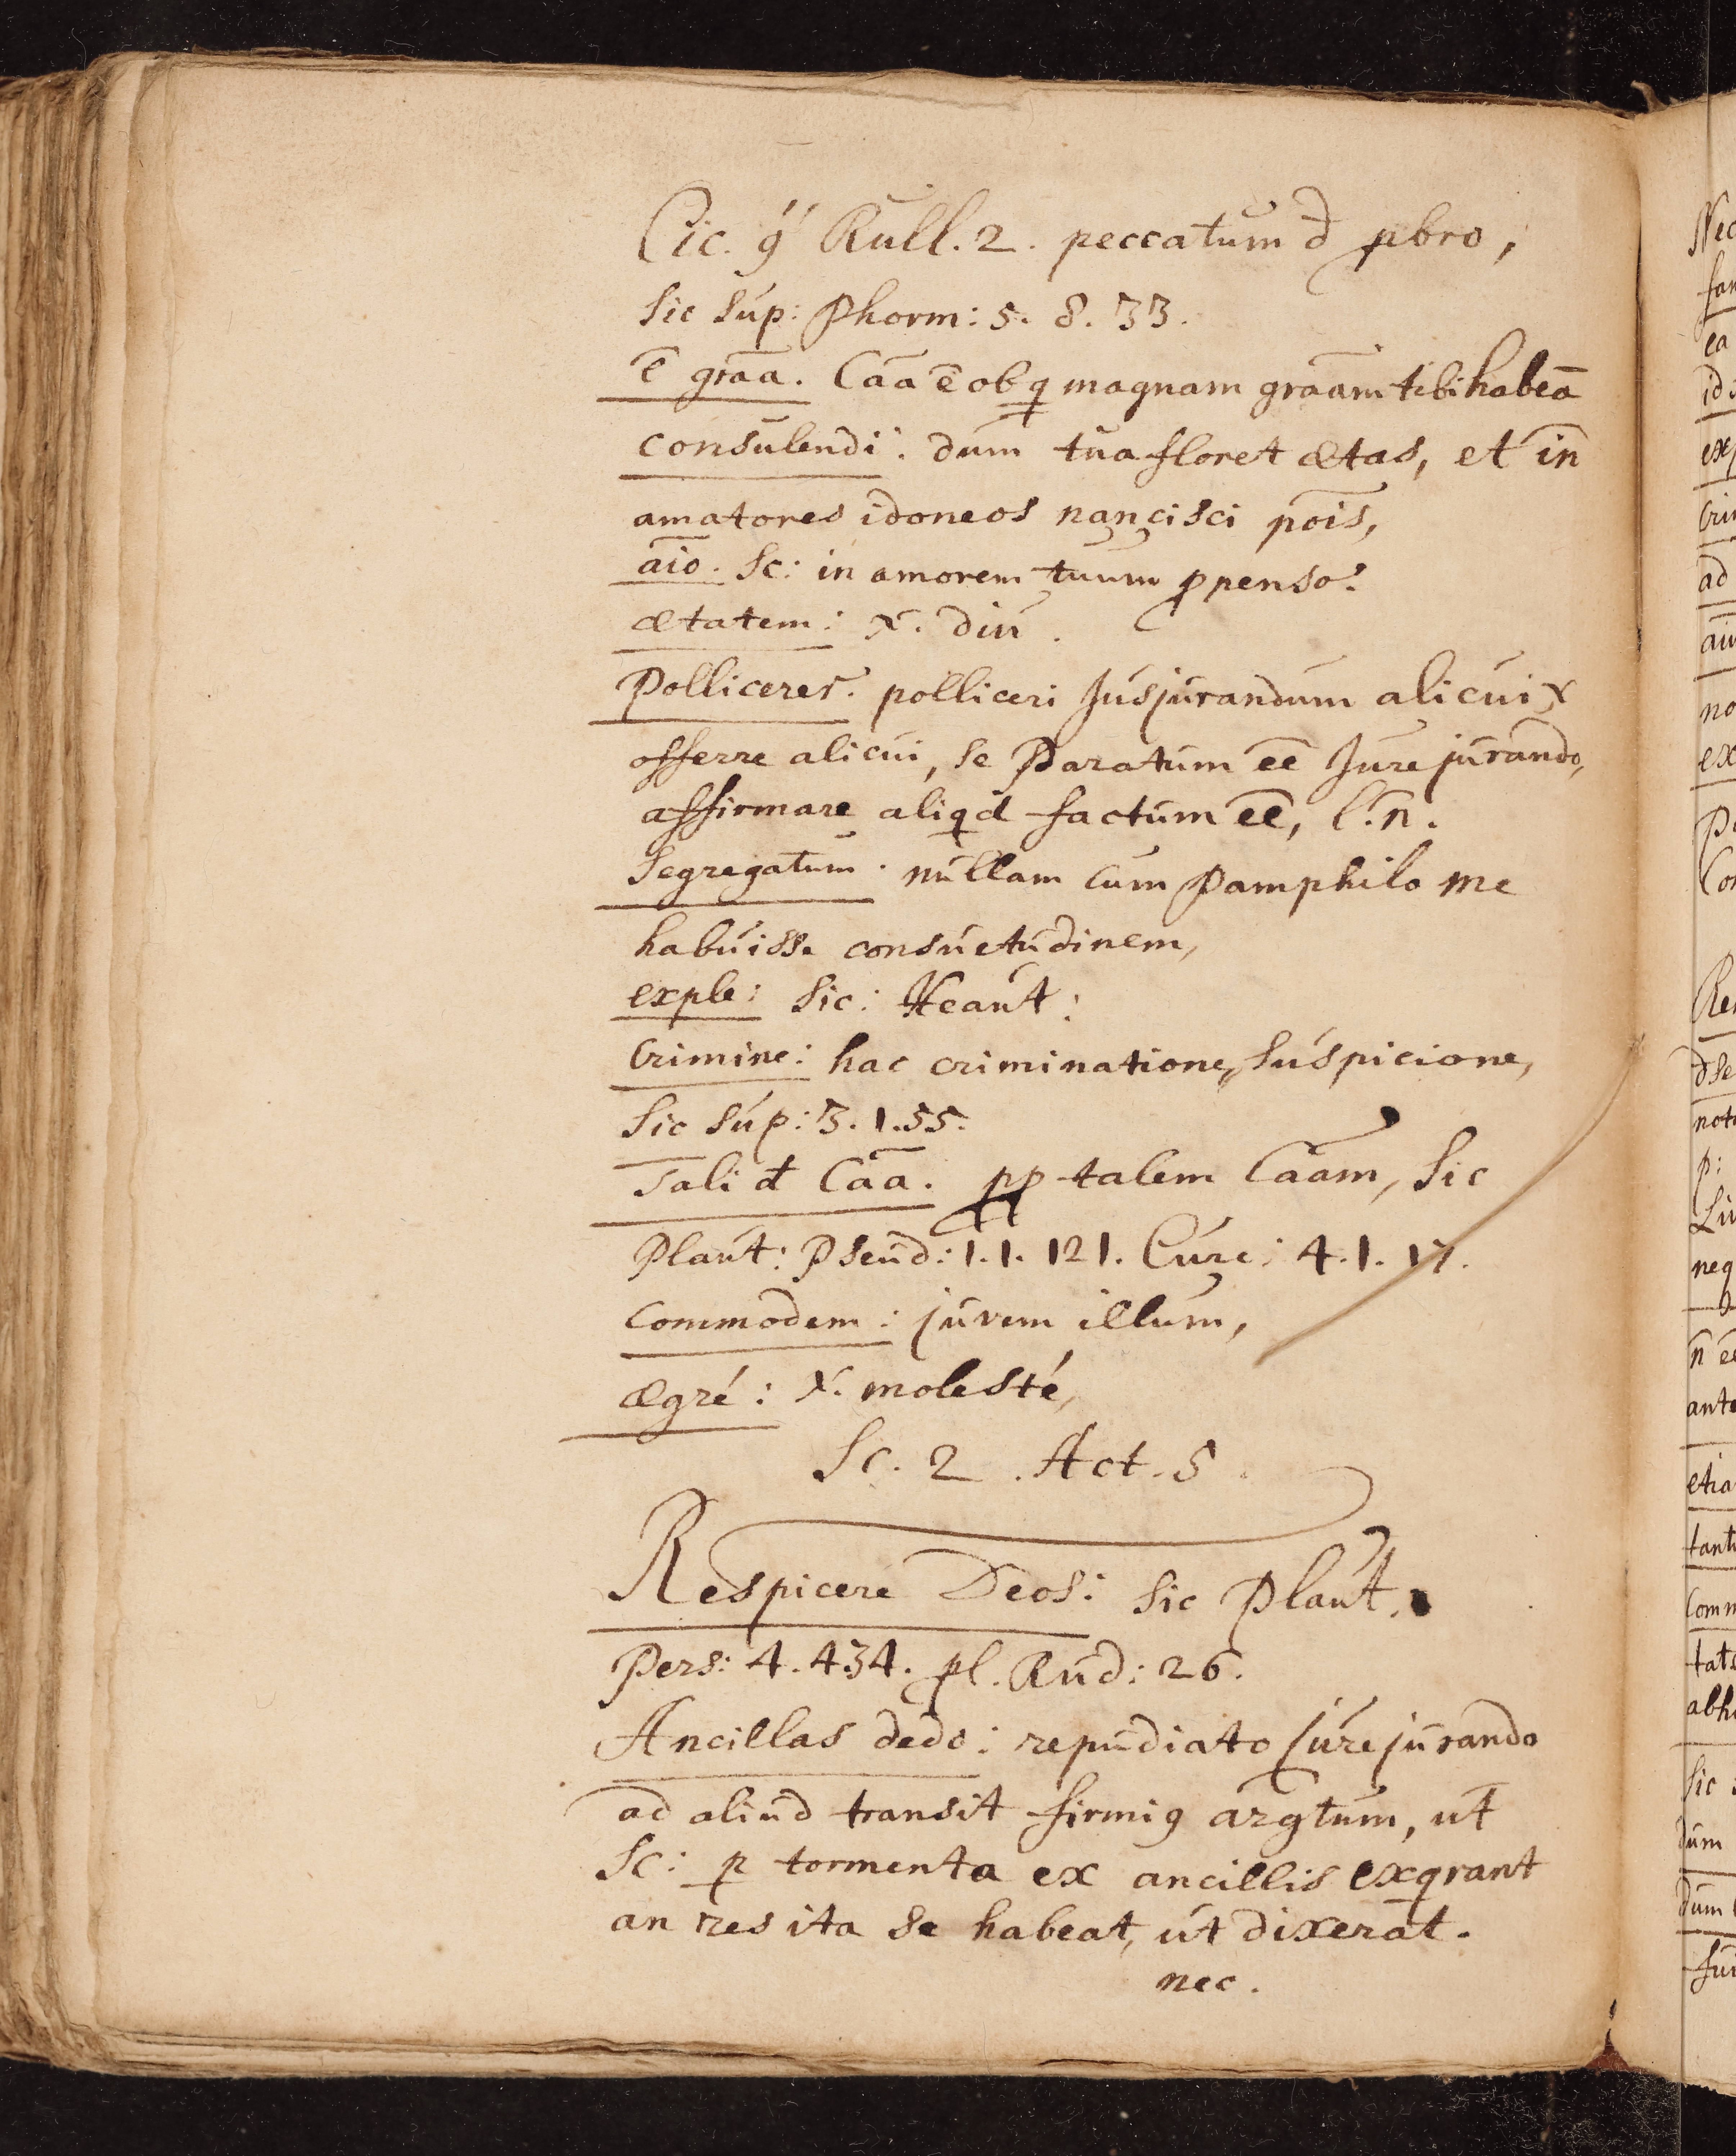 Cic. ꝯ́ Rull. 2. peccatum đ ꝓbro,
sic sup: Phorm: 5. 8. 33.
ē grāa. Cāa ē ob q magnam grāam tibi habeā
consulendi: dum tua floret ætas, et in̄
amatores idoneos nancisci pōis,
āio. Sc: in amorem tuum ꝓpenso.
ætatem: x. diu.
Polliceret. polliceri Jusjurandum alicui x
offerre alicui, se Paratum ēē Jurejurando,
affirmare aliqd factum ēē, l. n̄.
Segregatum. nullam cum Pamphilo me
habuisse consuetudinem,
exple: sic: Heaut:
Crimine: hac criminatione, suspicione,
sic sup: 3. 1. 55.
Tali đ Cāa. ꝓp talem Cāam, sic
Plaut: Pseud: 1. 1. 121. Curc: 4. 1.
commodem: juvem illum,
ægré: x. molesté,
Sc. 2. Act. 5.
Respicere Deos: sic Plaut.
Pers: 4. 434. pl. Rud: 26.
Ancillas dedo: repudiato jurejurando
ad aliud transit firmiꝯ argtum, ut
Sc: ꝑ tormenta ex ancillis exqrant
an res ita se habeat, ut dixerāt.
nec.